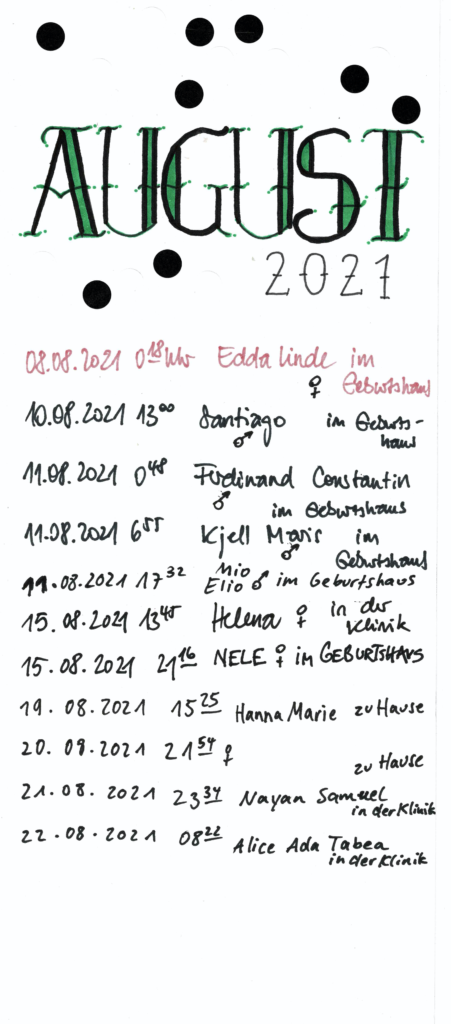 AUGUST
2021
08.08.2021 0 18 Uhr Edda Linde im
♀ Geburtshaus
10.08.2021 13 00 Santiago im Geburts-
♂ haus
11.08.2021 0 48 Ferdinand Constantin
♂ im Geburtshaus
11.08.2021 6 55 Kjell Maris im
♂ Geburtshaus
11.08.2021 17 32 Mio
Elio ♂ im Geburtshaus
15.08.2021 13 45 Helena ♀ in der
Klinik
15.08.2021 21 16 NELE ♀ im GEBURTSHAUS
19.08.2021 15 25 Hanna Marie zu Hause
20.08.2021 21 54 ♀
zu Hause
21.08.2021 23 34 Nayan Samuel
in der Klinik
22.08.2021 08 22 Alice Ada Tabea
in der Klinik